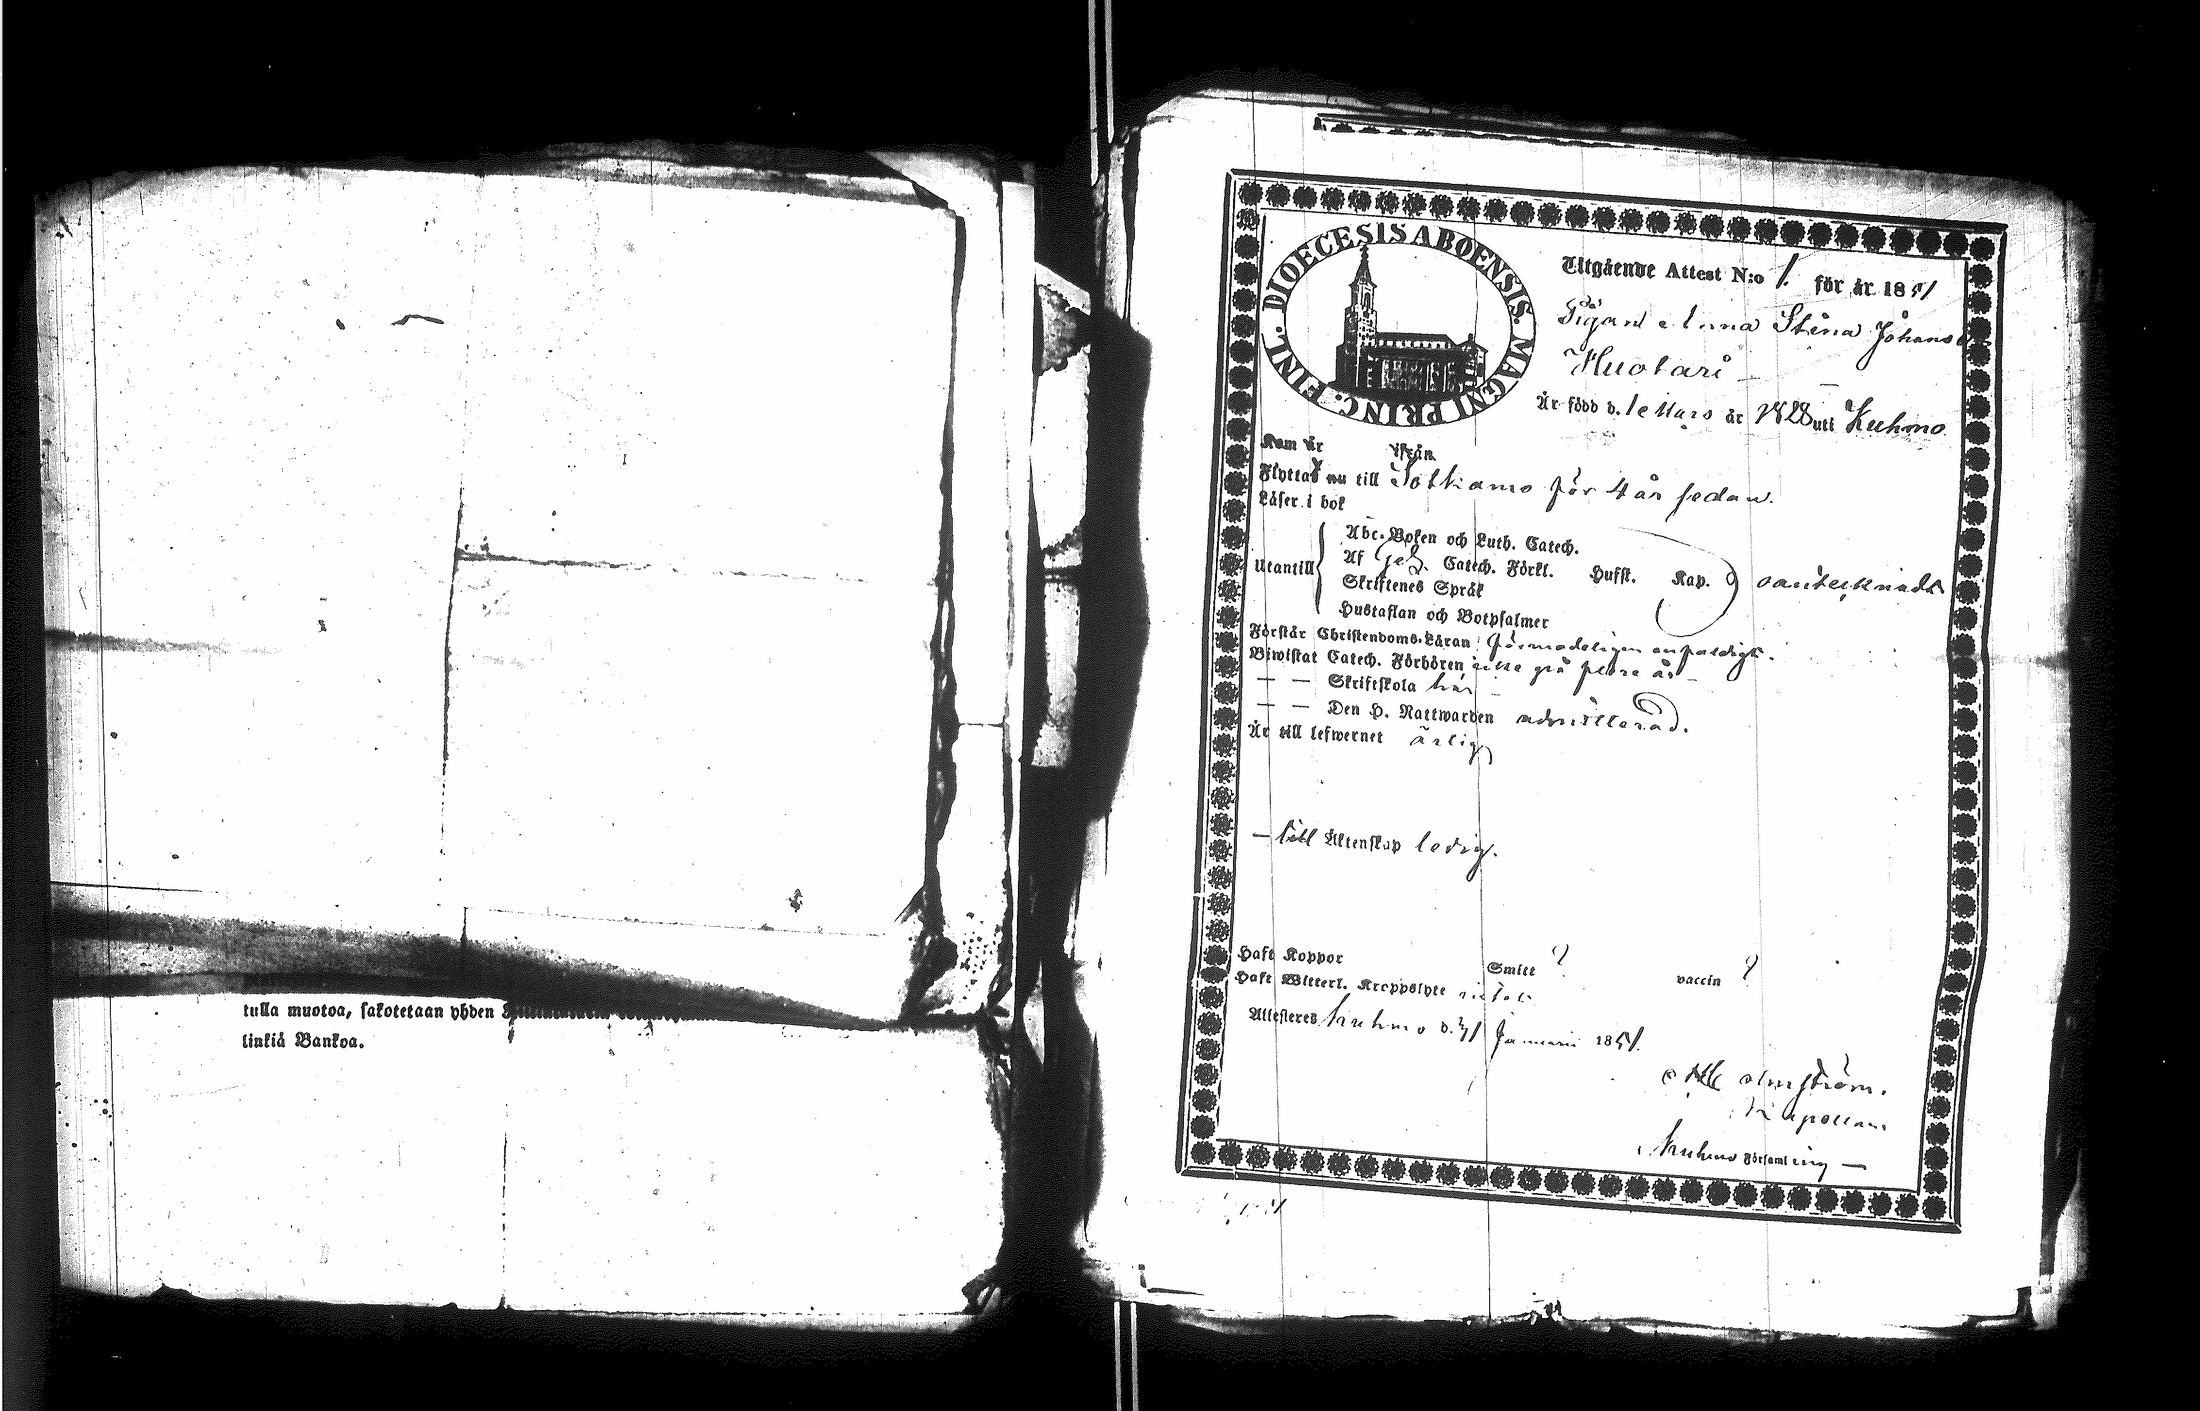 tulla muotoa, sakotetaan yhden
linkiä Bankoa.
DIOECESIS ABOENSIS. MAGNI PRINC. FINL.
Utgående Attest N:o 1. för år 1851
Pigan Anna Stina Johansd
Huotari
Är född d. 1 Mars år 1828 uti Kuhmo
Kom år ifrån
Flyttad nu till Sotkamo för 4 år sedan.
Läser i bok
Utantill
Abc-Boken och Luth. Catech.
Af Catech. Förkl. Hufst. Kap.
Skriftenes Språk
Hustaflan och Botpsalmer
Förstår Christendoms-Läran förmodeligen enfaldigt.
Biwistat Catech. Förhören icke på flere år
— — Skriftskola här
— — Den H. Nattwarden admitterad.
Är till lefwernet ärlig
— till Äktenskap ledig.
Haft Koppor Smitt ? vaccin ?
Haft Witterl. Kroppslyte intet
Attesteres Kuhmo d. Januarii 1851.
Kapellan
Kuhmo Församling —